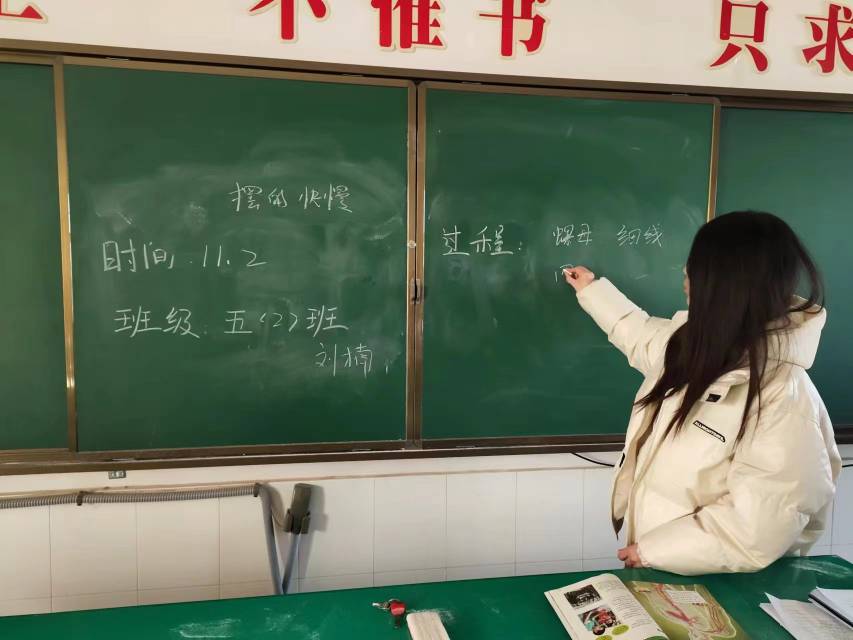 不惟书 只求
摆的快慢
时间, 11.2
班级: 五(2)班
刘楠
过程: 螺母 细线